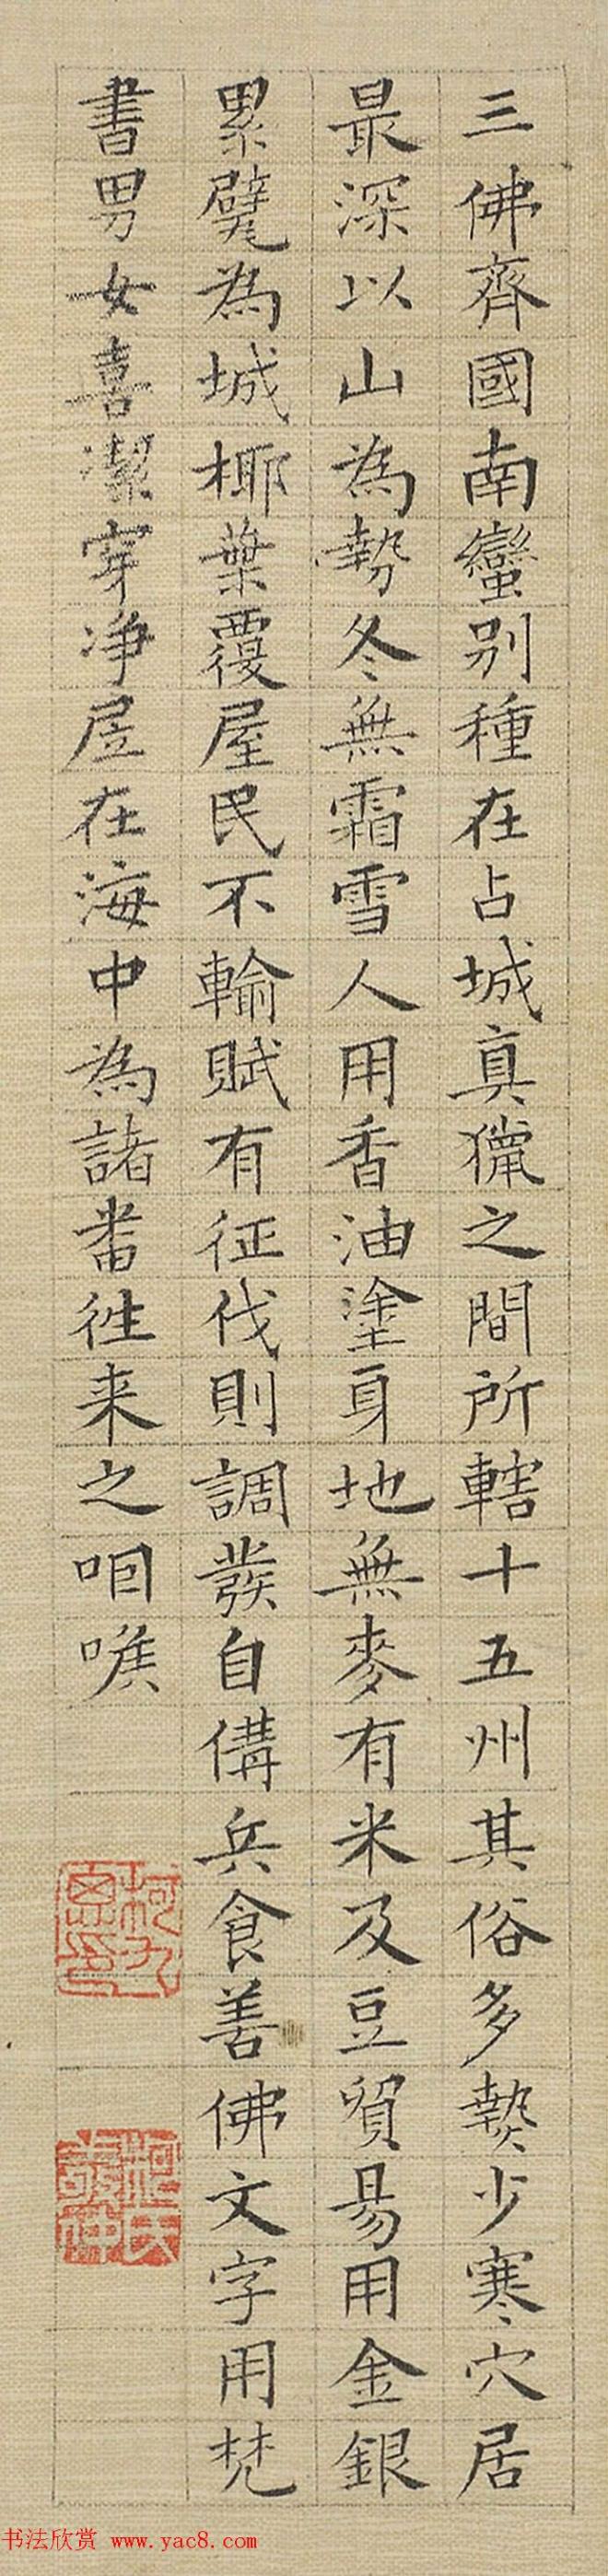 三佛齊國南蠻别種在占城真獵之間所轄十五州其俗多𤍠少寒穴居
最深以山為勢冬無霜雪人用香油塗身地無麥有米及豆貿易用金銀
累甓為城椰葉覆屋民不輸賦有征伐則調發自備兵食善佛文字用梵
書男女喜潔穿净屋在海中為諸畨往来之咽喉
柯九思印
柯氏敬仲
书法欣赏 www.yac8.com